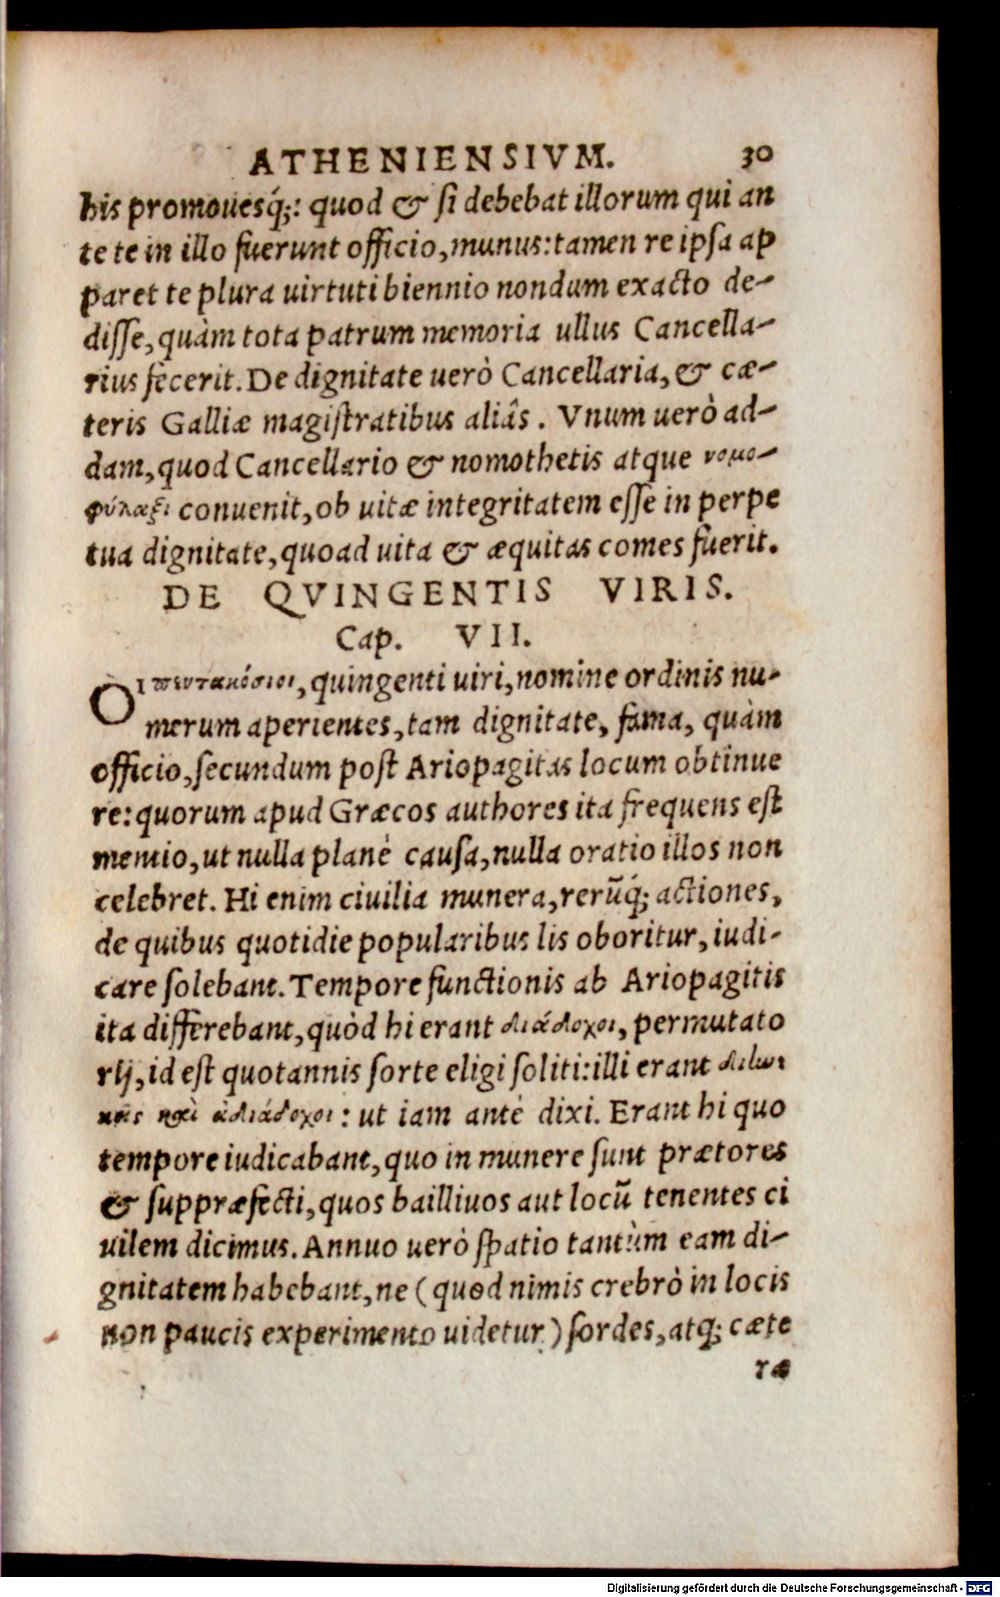 ATHENIENSIVM. 30
his promouesq́;: quod & ſi debebat illorum qui an
te te in illo fuerunt officio, munus: tamen re ipſa ap
paret te plura uirtuti biennio nondum exacto de-
diſſe, quàm tota patrum memoria ullus Cancella-
rius fecerit. De dignitate uerò Cancellaria, & cæ-
teris Galliæ magiſtratibus aliâs. Vnum uerò ad-
dam, quod Cancellario & nomothetis atque νομο-
φύλαξι conuenit, ob uitæ integritatem eſſe in perpe
tua dignitate, quoad uita & æquitas comes fuerit.
DE QVINGENTIS VIRIS.
Cap. VII.
Οἱ πεντακόσιοι, quingenti uiri, nomine ordinis nu-
merum aperientes, tam dignitate, fama, quàm
officio, ſecundum poſt Ariopagitas locum obtinue
re: quorum apud Græcos authores ita frequens eſt
mentio, ut nulla planè cauſa, nulla oratio illos non
celebret. Hi enim ciuilia munera, rerũq́; actiones,
de quibus quotidie popularibus lis oboritur, iudi-
care ſolebant. Tempore functionis ab Ariopagitis
ita differebant, quòd hi erant διάδοχοι, permutato
rij, id eſt quotannis ſorte eligi ſoliti: illi erant
καὶ ἀδιάδοχοι: ut iam antè dixi. Erant hi quo
tempore iudicabant, quo in munere ſunt prætores
& ſuppræfecti, quos bailliuos aut locũ tenentes ci
uilem dicimus. Annuo uerò ſpatio tantùm eam di-
gnitatem habebant, ne (quod nimis crebrò in locis
non paucis experimento uidetur) ſordes, atq; cæte
ra
Digitalisierung gefördert durch die Deutsche Forschungsgemeinschaft - DFG